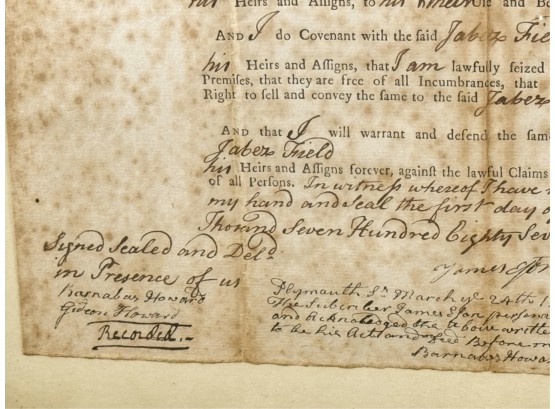 his Heirs and Assigns, to his Use and Be
AND I do Covenant with the said Jabez Fie
his Heirs and Aſſigns, that I am lawfully ſeized
Premiſes, that they are free of all Incumbrances, that
Right to ſell and convey the ſame to the ſaid Jabez
AND that I will warrant and defend the ſam
Jabez Field
his Heirs and Aſſigns forever, againſt the lawful Claims
of all Perſons. In witneſs whereof I have
my hand and Seal the first day o
Thousand Seven Hundred Eighty Sev
Signed Sealed and Deld
in Presence of us
James
Barnabas Howard
Gideon Howard
Recorded.
Plymouth Ss March ye 24th 1
The Subscriber James person
and Acknowledged the above writte
to be his Act and Deed Before m
Barnabas Howa